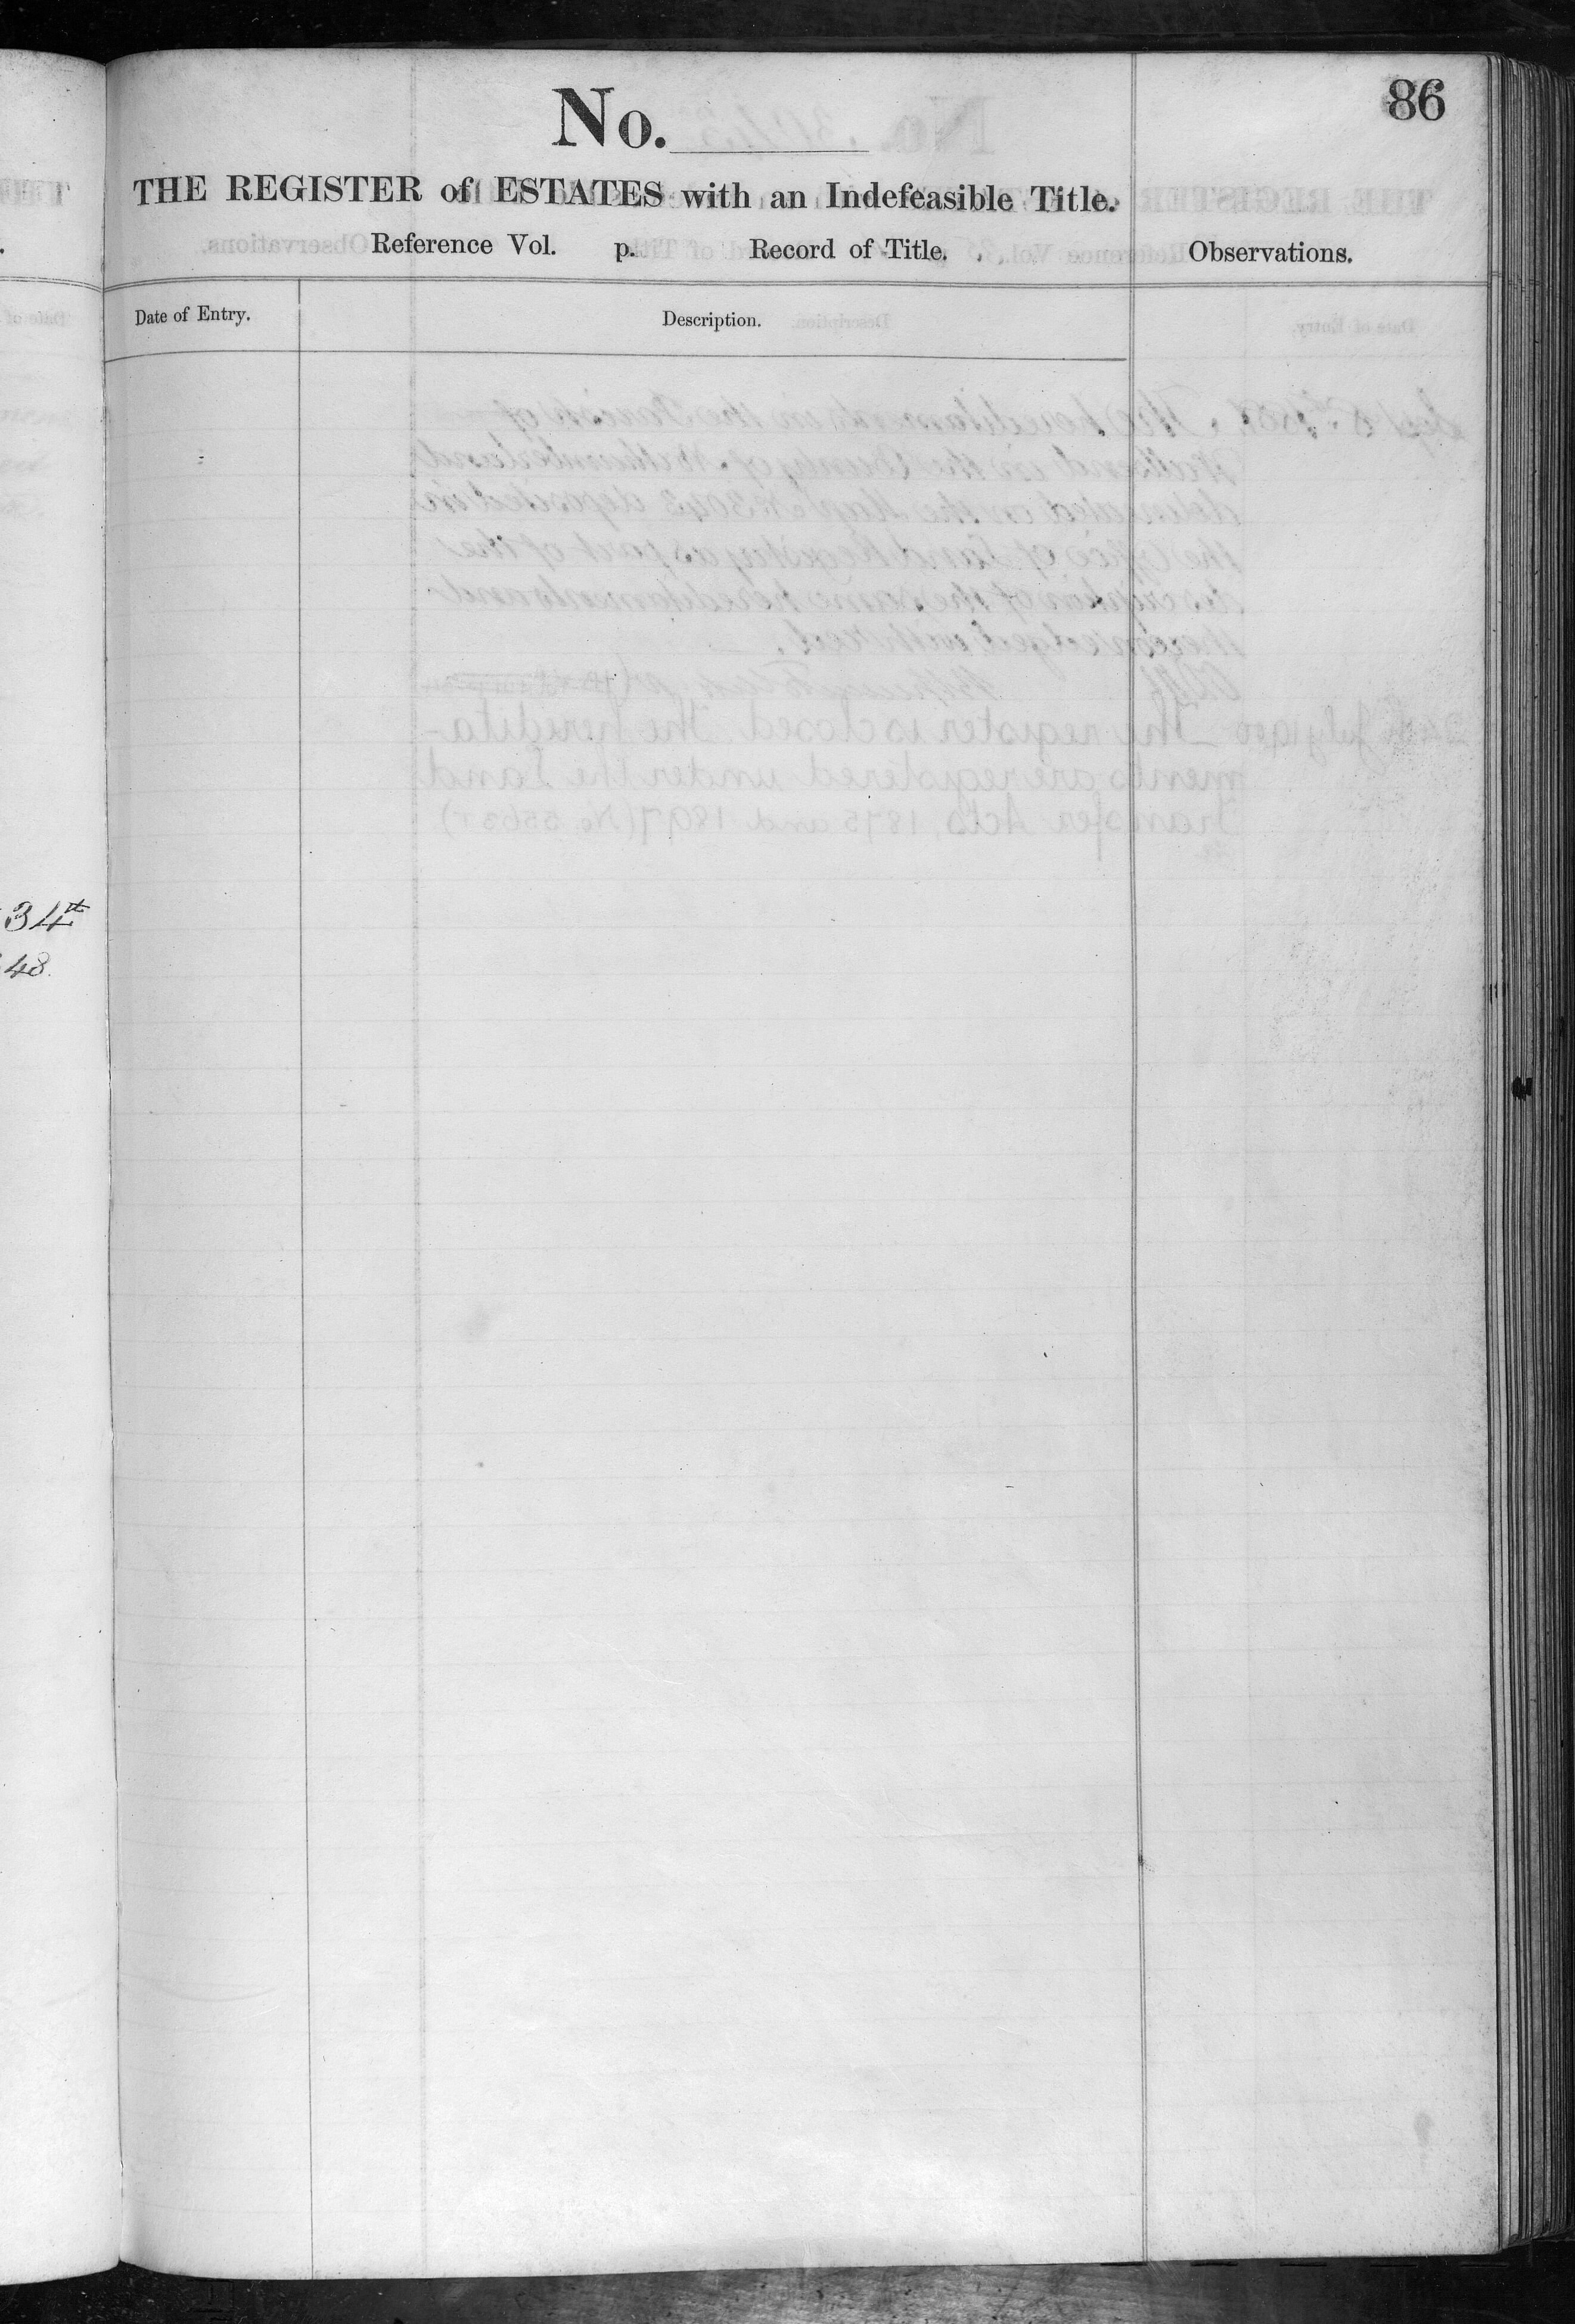 86
No.
THE REGISTER of ESTATES with an Indefeasible Title.
Reference Vol. p. Record of Title.
Observations.
Date of Entry.
Description.
34
48.
The hereditaments in the Parish of
in the County of Northumberland
delineated in the Map No. 3043 deposited in
the Office of Land Registry as part of the
description of the same hereditaments and
24th July 1900 The register is closed The heredita-
ments are registered under the Land
Transfer Acts, 1875 and 1897 (No.